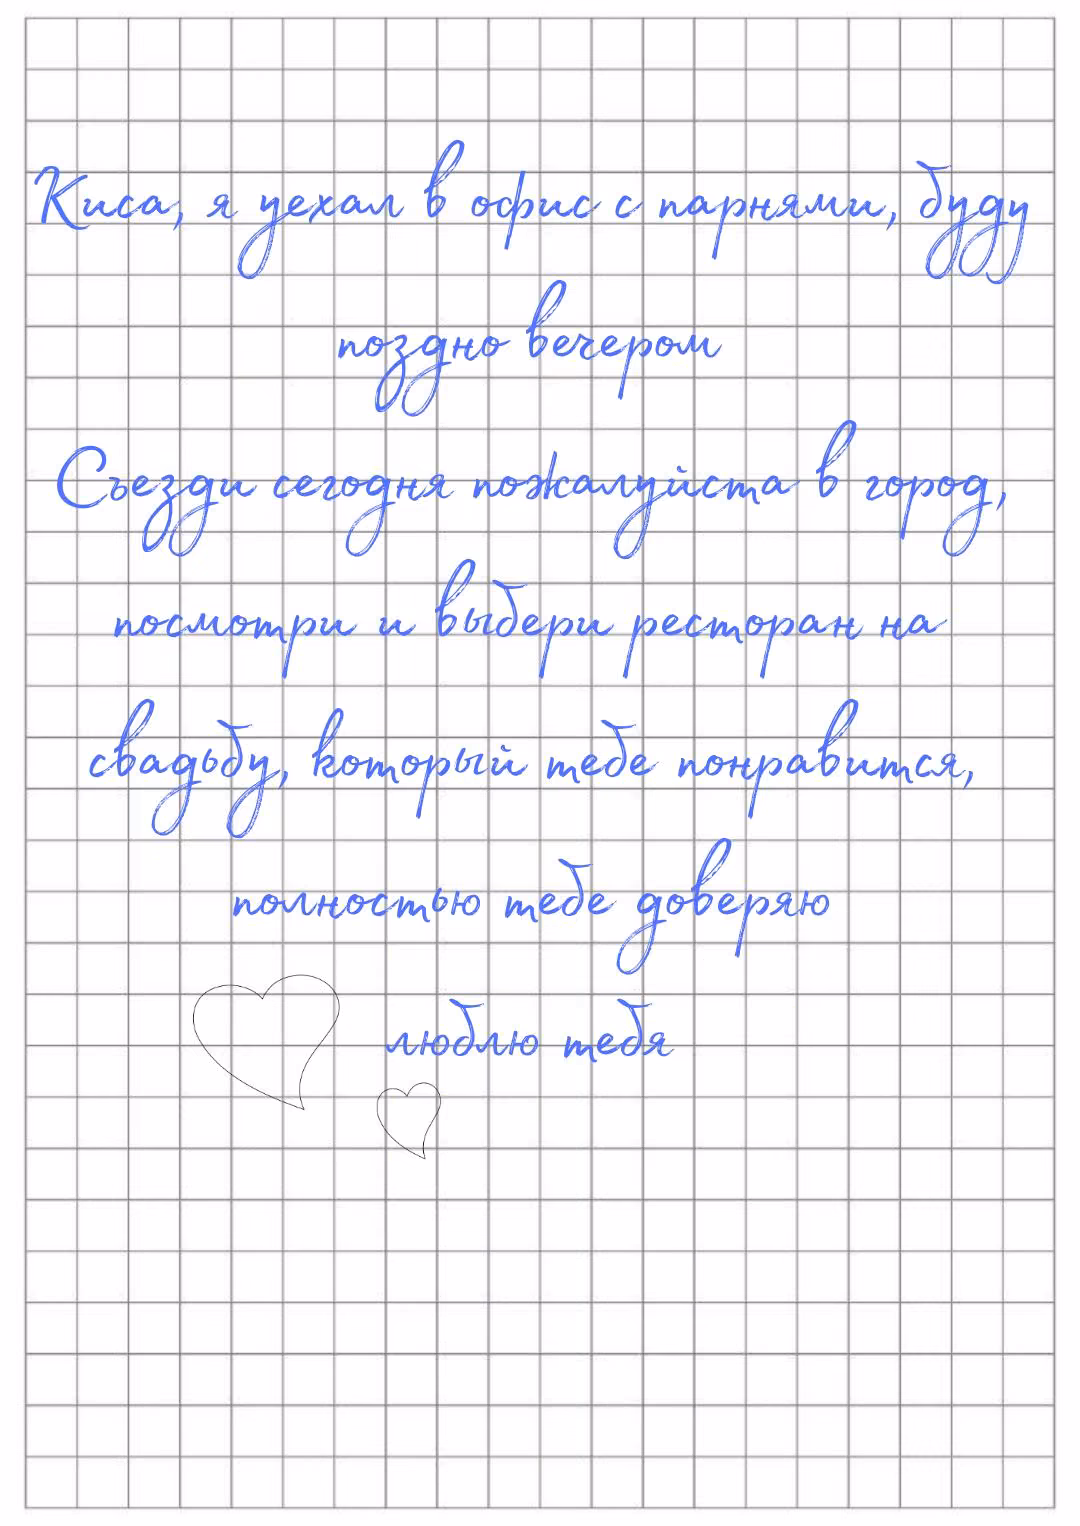 Киса, я уехал в офис с парнями, буду
поздно вечером
Съезди сегодня пожалуйста в город,
посмотри и выбери ресторан на
свадьбу, который тебе понравится,
полностью тебе доверяю
люблю тебя